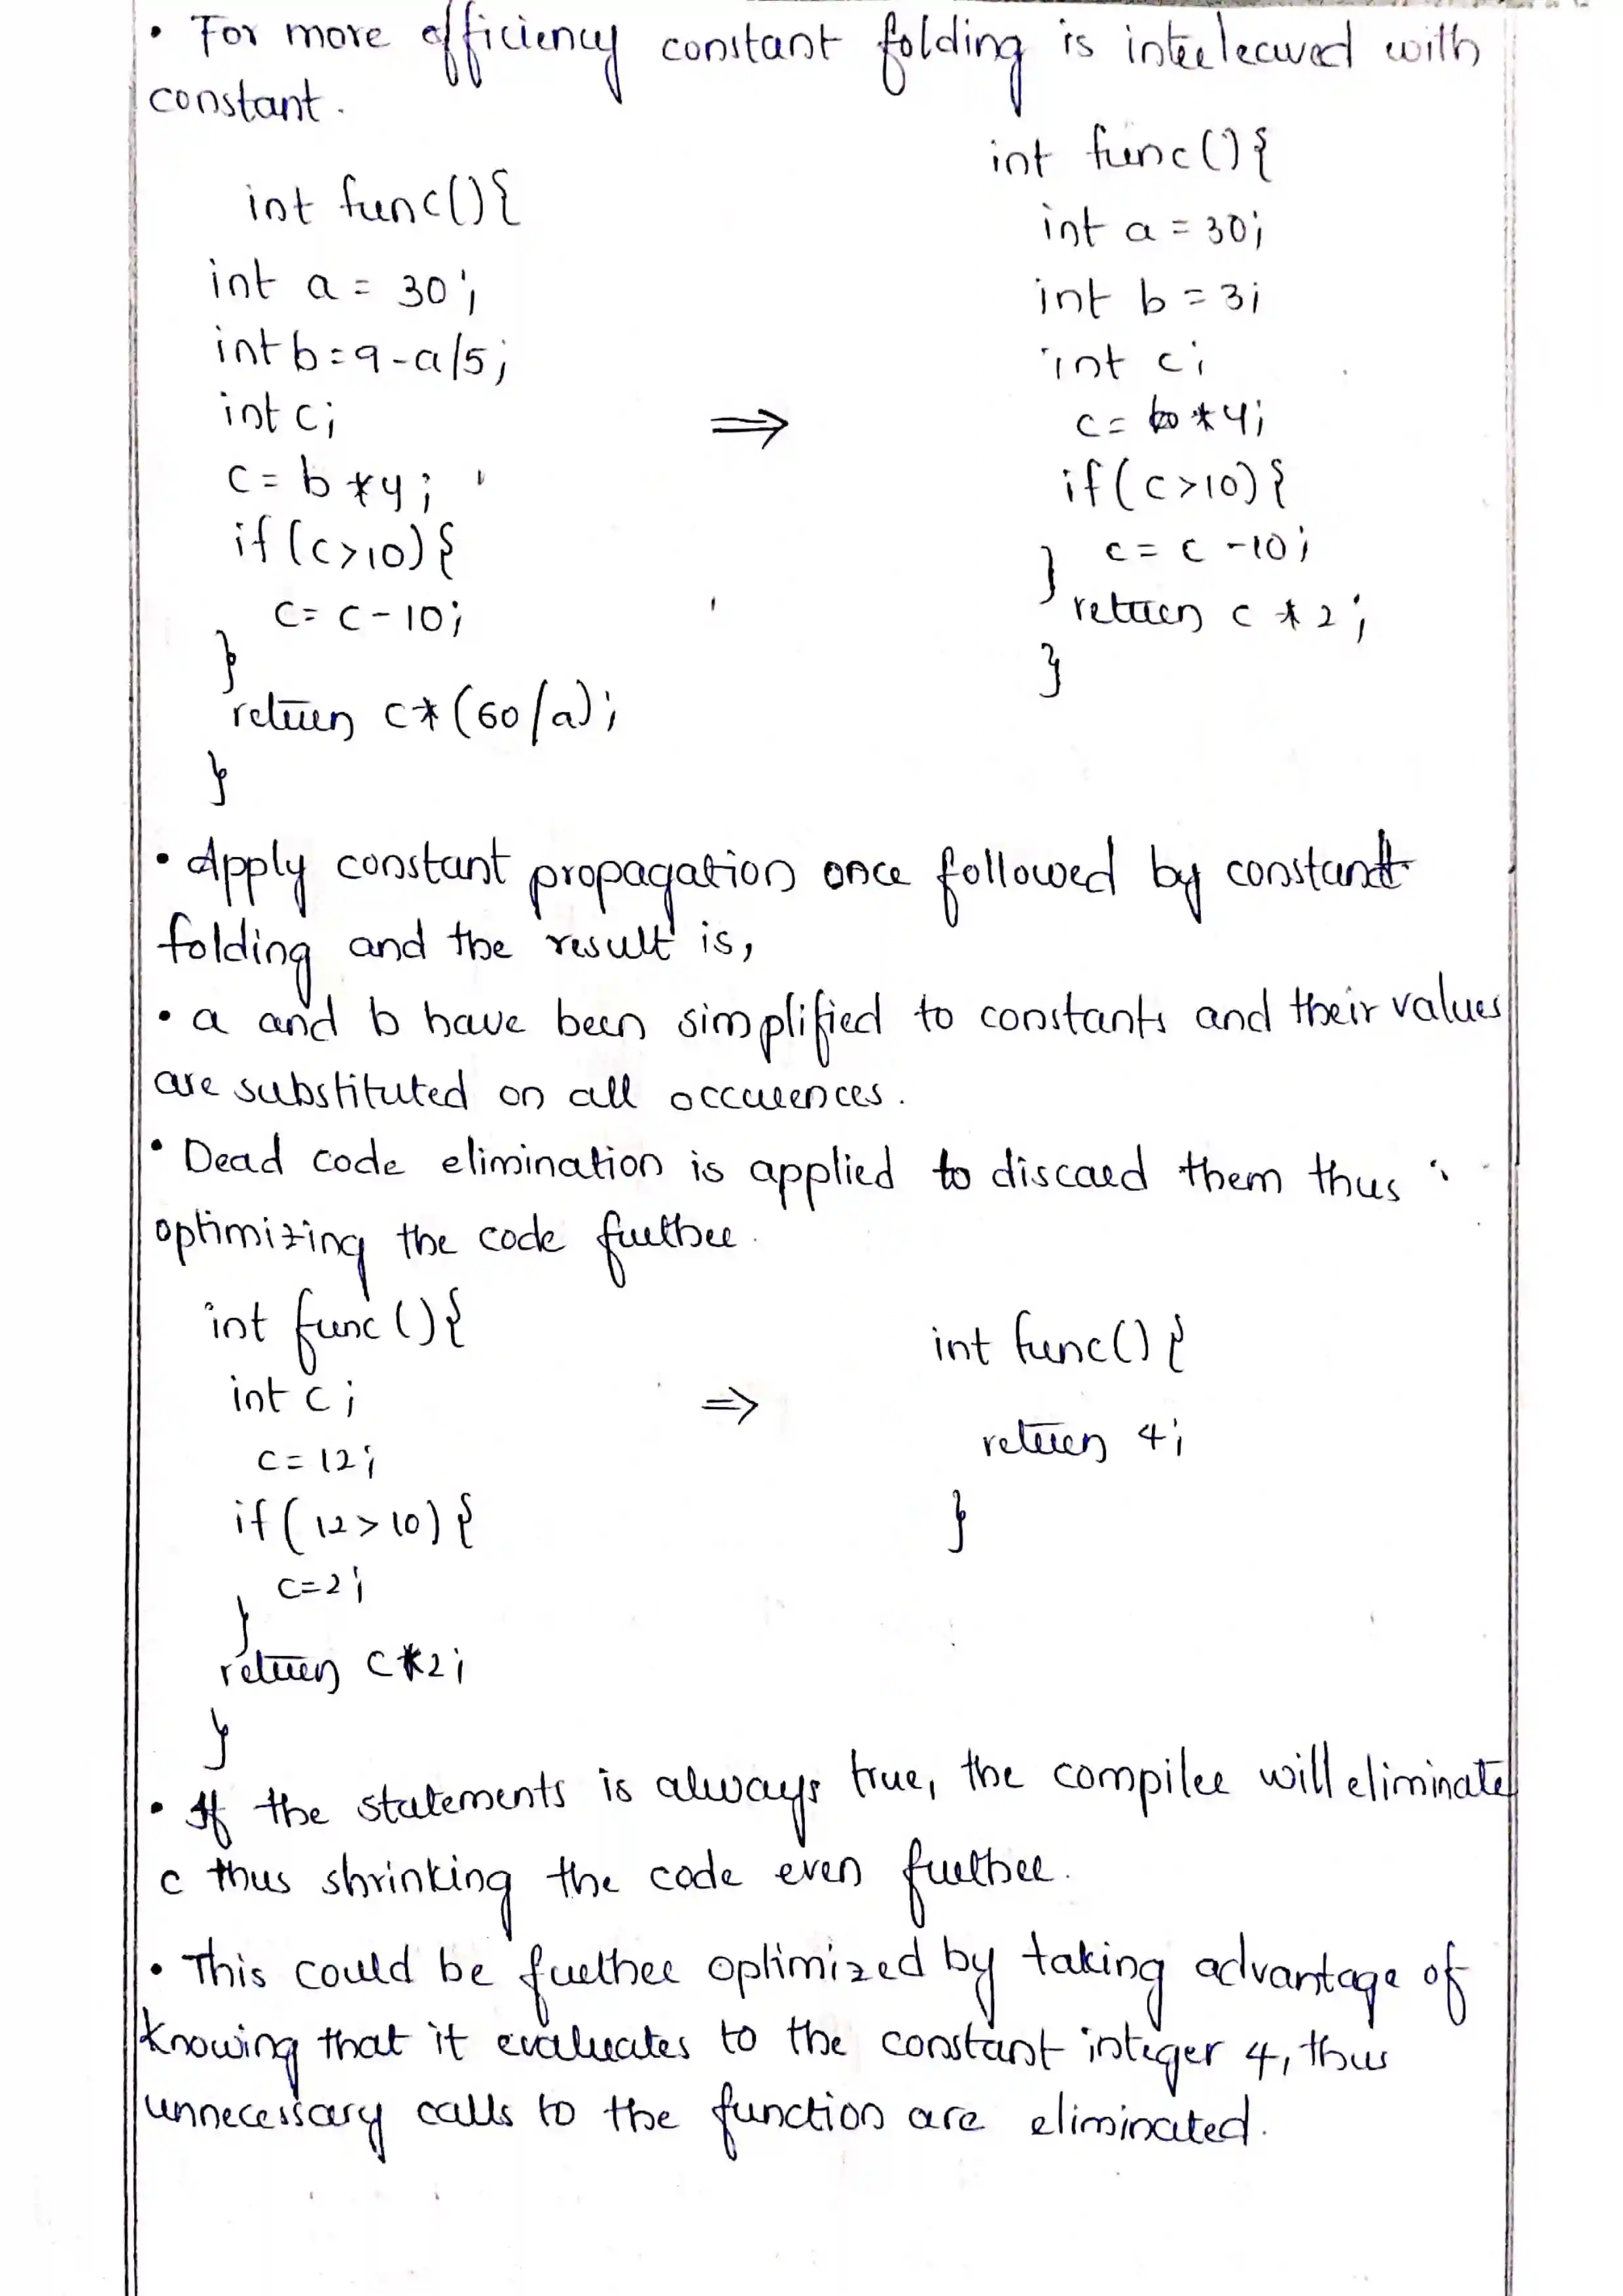 • For more efficiency constant folding is interleaved with
constant.
int func(){
int a = 30;
int b = 9 - a/5;
int c;
c = b * 4;
if (c>10){
c = c - 10;
}
return c * (60/a);
}
⇒
int func(){
int a = 30;
int b = 3;
int c;
c = b * 4;
if (c>10){
c = c - 10;
}
return c * 2;
}
• Apply constant propagation once followed by constant
folding and the result is,
• a and b have been simplified to constants and their values
are substituted on all occurences.
• Dead code elimination is applied to discard them thus
optimizing the code further.
int func(){
int c;
c = 12;
if (12>10){
c=2;
}
return c*2;
}
⇒
int func(){
return 4;
}
• If the statements is always true, the compiler will eliminate
c thus shrinking the code even further.
• This could be further optimized by taking advantage of
knowing that it evaluates to the constant integer 4, thus
unnecessary calls to the function are eliminated.